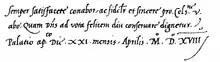 semper satisfacere conabor, ac fidelr et sincere pro Cels.ne v.
abo: Quam Dñs ad vota felicem diu conseruare dignetur.
Palatio ap. Die. XXI. mensis. Aprilis. M. D. XVIII